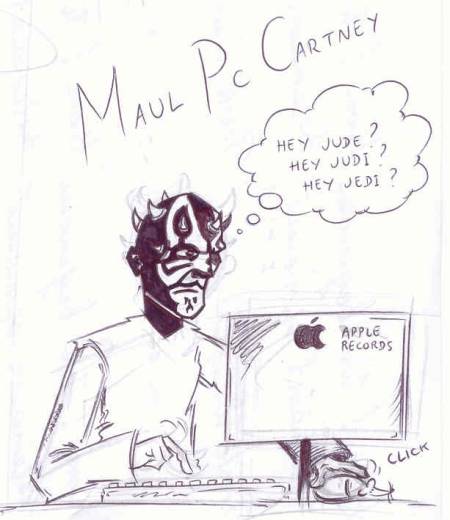 MAUL PC CARTNEY
HEY JUDE?
HEY JUDI?
HEY JEDI?
APPLE
RECORDS
CLICK